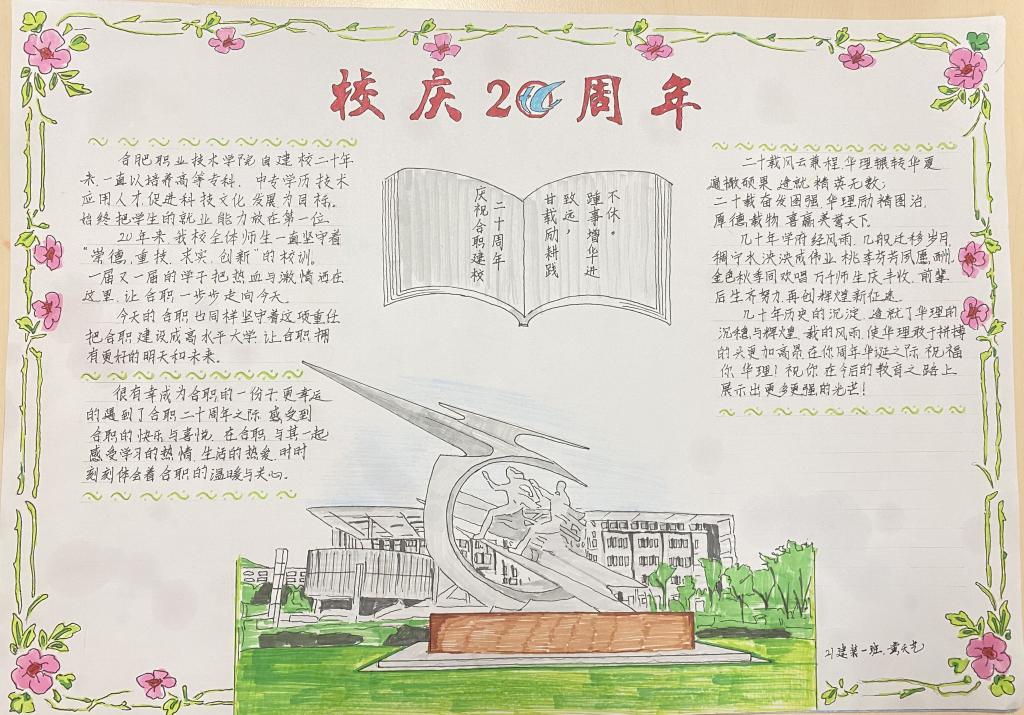 校庆20周年
合肥职业技术学院自建校二十年
来,一直以培养高等专科、中专学历技术
应用人才,促进科技文化发展为目标。
始终把学生的就业能力放在第一位
20年来,我校全体师生一直坚守着
"崇德、重技、求实、创新"的校训。
一届又一届的学子把热血与激情洒在
这里,让合职一步步走向今天。
今天的合职也同样坚守着这项重任
把合职建设成高水平大学,让合职拥
有更好的明天和未来。
很有幸成为合职的一份子,更幸运
的遇到了合职二十周年之际,感受到
合职的快乐与喜悦,在合职,与其一起
感受学习的热情,生活的热爱,时时
刻刻体会着合职的温暖与关心。
不休。
踵事增华进
致远,
廿载励耕践
二十周年
庆祝合职建校
二十载风云兼程,华理辗转华夏
遍撒硕果,造就精英无数;
二十载奋发图强,华理励精图治,
厚德载物,喜赢美誉天下。
几十年学府经风雨,几般迁移岁月
稠宁水泱泱成伟业,桃李芬芳夙愿酬,
金色秋季同欢唱,万千师生庆丰收,前辈
后生齐努力,再创辉煌新征途
几十年历史的沉淀,造就了华理的
沉稳与辉煌,载的风雨,使华理敢于拼搏
的头更加高昂,在你周年华诞之际,祝福
你,华理!祝你在今后的教育之路上
展示出更多更强的光芒!
21建装一班